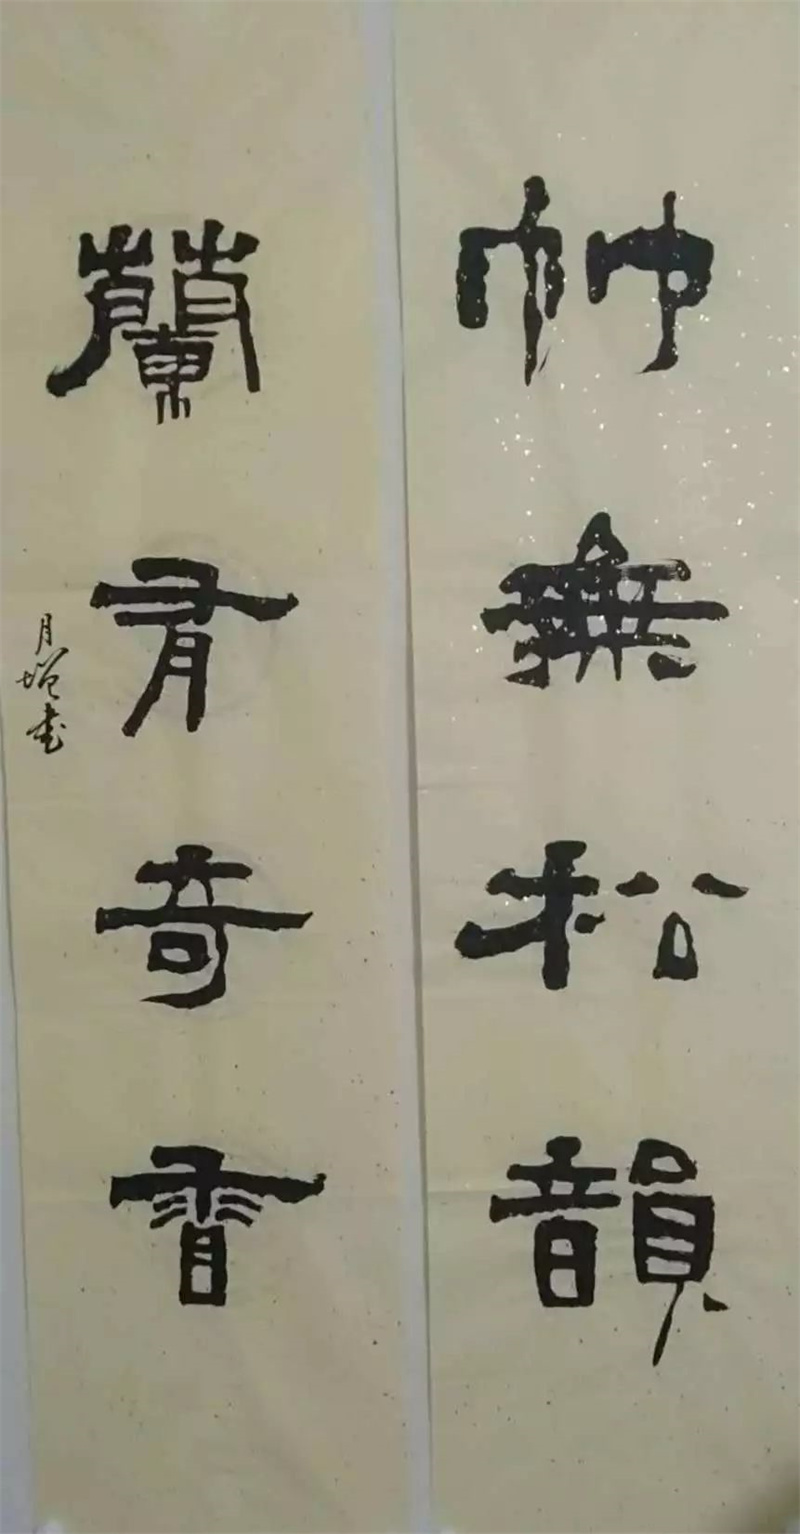 竹無松韻
蘭有奇香
月增书